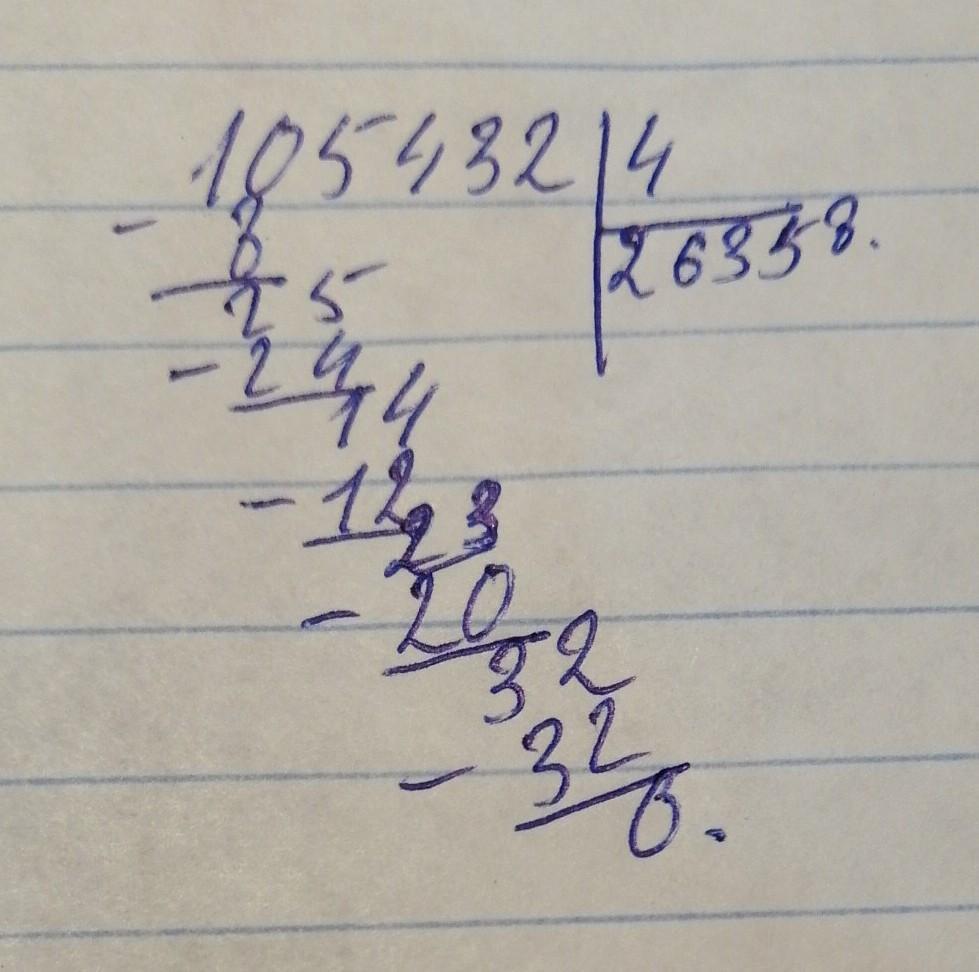 105432 | 4
- 8 | 26358.
25
- 24
14
- 12
23
- 20
32
- 32
0.